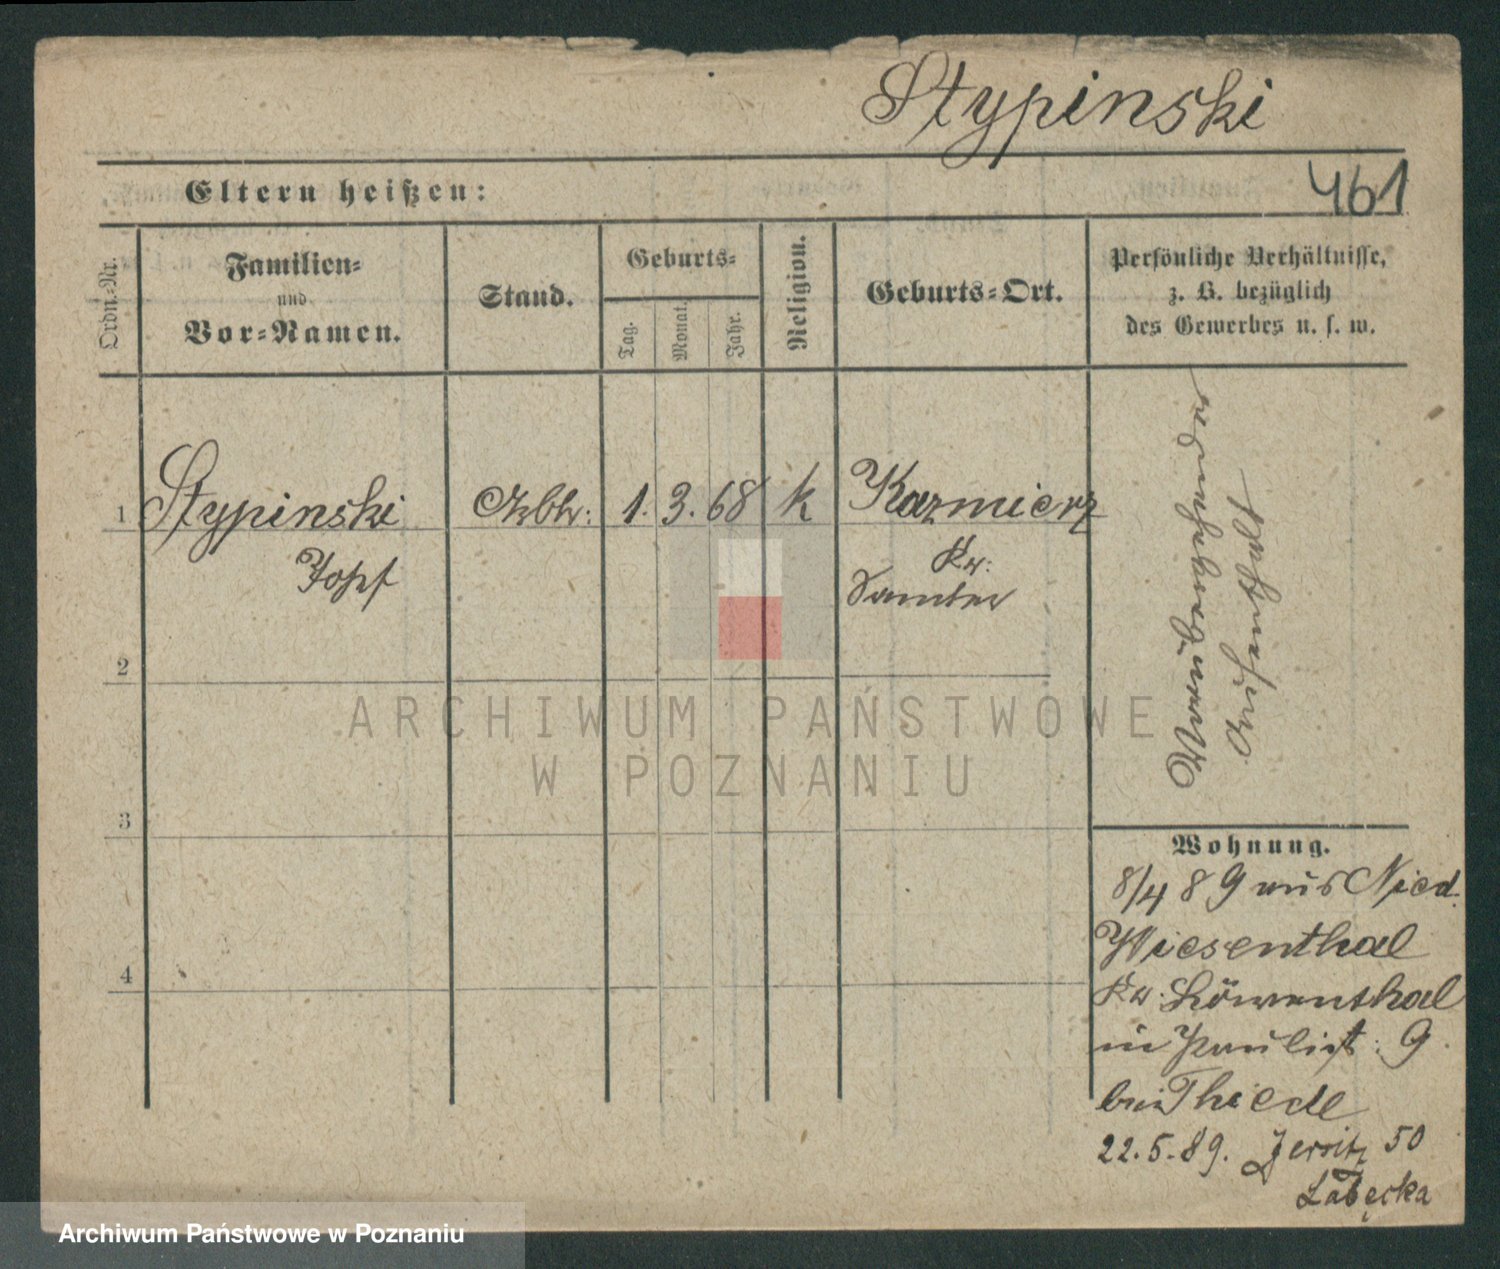 Stypinski
461
Eltern heißen:
Ordn.-Nr.
Familien-
und
Vor-Namen.
Stand.
Geburts-
Tag.
Monat.
Jahr.
Religion.
Geburts-Ort.
Persönliche Verhältnisse,
z. B. bezüglich
des Gewerbes u. s. w.
1 Stypinski Arbtr: 1. 3. 68 k Kazmierz
Josef Kr:
Samter
2
3
4
Wohnung.
8/4 89 aus Nied.
Wiesenthal
Kr. Löwenthal
in Paulist: 9.
bei Thiede
22.5.89. Jersitz 50
Łabęcka
ARCHIWUM PAŃSTWOWE
W POZNANIU
Archiwum Państwowe w Poznaniu